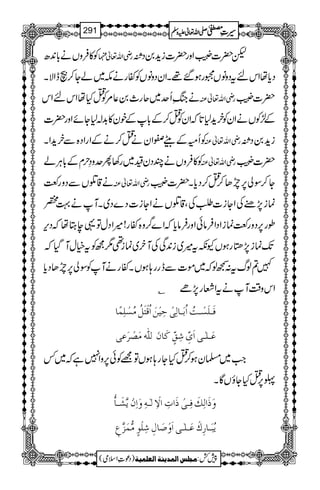 سیرتِ مصطفیٰ صلی اللہ تعالیٰ علیہ وسلم
291
لیکن حضرت خبیب اور حضرت زید بن دثنہ رضی اللہ تعالیٰ عنہما کو کافروں نے باندھ
دیا تھا اس لئے یہ دونوں مجبور ہو گئے تھے۔ ان دونوں کو کفار نے مکہ میں لے جا کر بیچ ڈالا۔
حضرت خبیب رضی اللہ تعالیٰ عنہ نے جنگِ اُحد میں حارث بن عامر کو قتل کیا تھا اس لئے اس
کے لڑکوں نے ان کو خرید لیا تاکہ ان کو قتل کر کے باپ کے خون کا بدلہ لیا جائے اور حضرت
زید بن دثنہ رضی اللہ تعالیٰ عنہ کو اُمیہ کے بیٹے صفوان نے قتل کرنے کے ارادہ سے خریدا۔
حضرت خبیب رضی اللہ تعالیٰ عنہ کو کافروں نے چند دن قید میں رکھا پھر حدودِ حرم کے باہر لے
جا کر سولی پر چڑھا کر قتل کر دیا۔ حضرت خبیب رضی اللہ تعالیٰ عنہ نے قاتلوں سے دو رکعت
نماز پڑھنے کی اجازت طلب کی، قاتلوں نے اجازت دے دی۔ آپ نے بہت مختصر
طور پر دو رکعت نماز ادا فرمائی اور فرمایا کہ اے گروہ کفار! میرا دل تو یہی چاہتا تھا کہ دیر
تک نماز پڑھتا رہوں کیونکہ یہ میری زندگی کی آخری نماز تھی مگر مجھ کو یہ خیال آ گیا کہ
کہیں تم لوگ یہ نہ سمجھ لو کہ میں موت سے ڈر رہا ہوں۔ کفار نے آپ کو سولی پر چڑھا دیا
اس وقت آپ نے یہ اشعار پڑھے ؂
فَلَسْتُ اُبَالِیْ حِیْنَ اُقْتَلُ مُسْلِمًا
عَلٰی اَیِّ شِقٍّ کَانَ لِلّٰہِ مَصْرَعِیْ
جب میں مسلمان ہو کر قتل کیا جا رہا ہوں تو مجھے کوئی پروا نہیں ہے کہ میں کس
پہلو پر قتل کیا جاؤں گا۔
وَذَالِکَ فِیْ ذَاتِ الْاِلٰہِ وَاِنْ یَّشَأْ
یُبَارِکْ عَلٰی اَوْصَالِ شِلْوٍ مُّمَزَّعٍ
پیش کش: مجلس المدینة العلمیة (دعوتِ اسلامی)